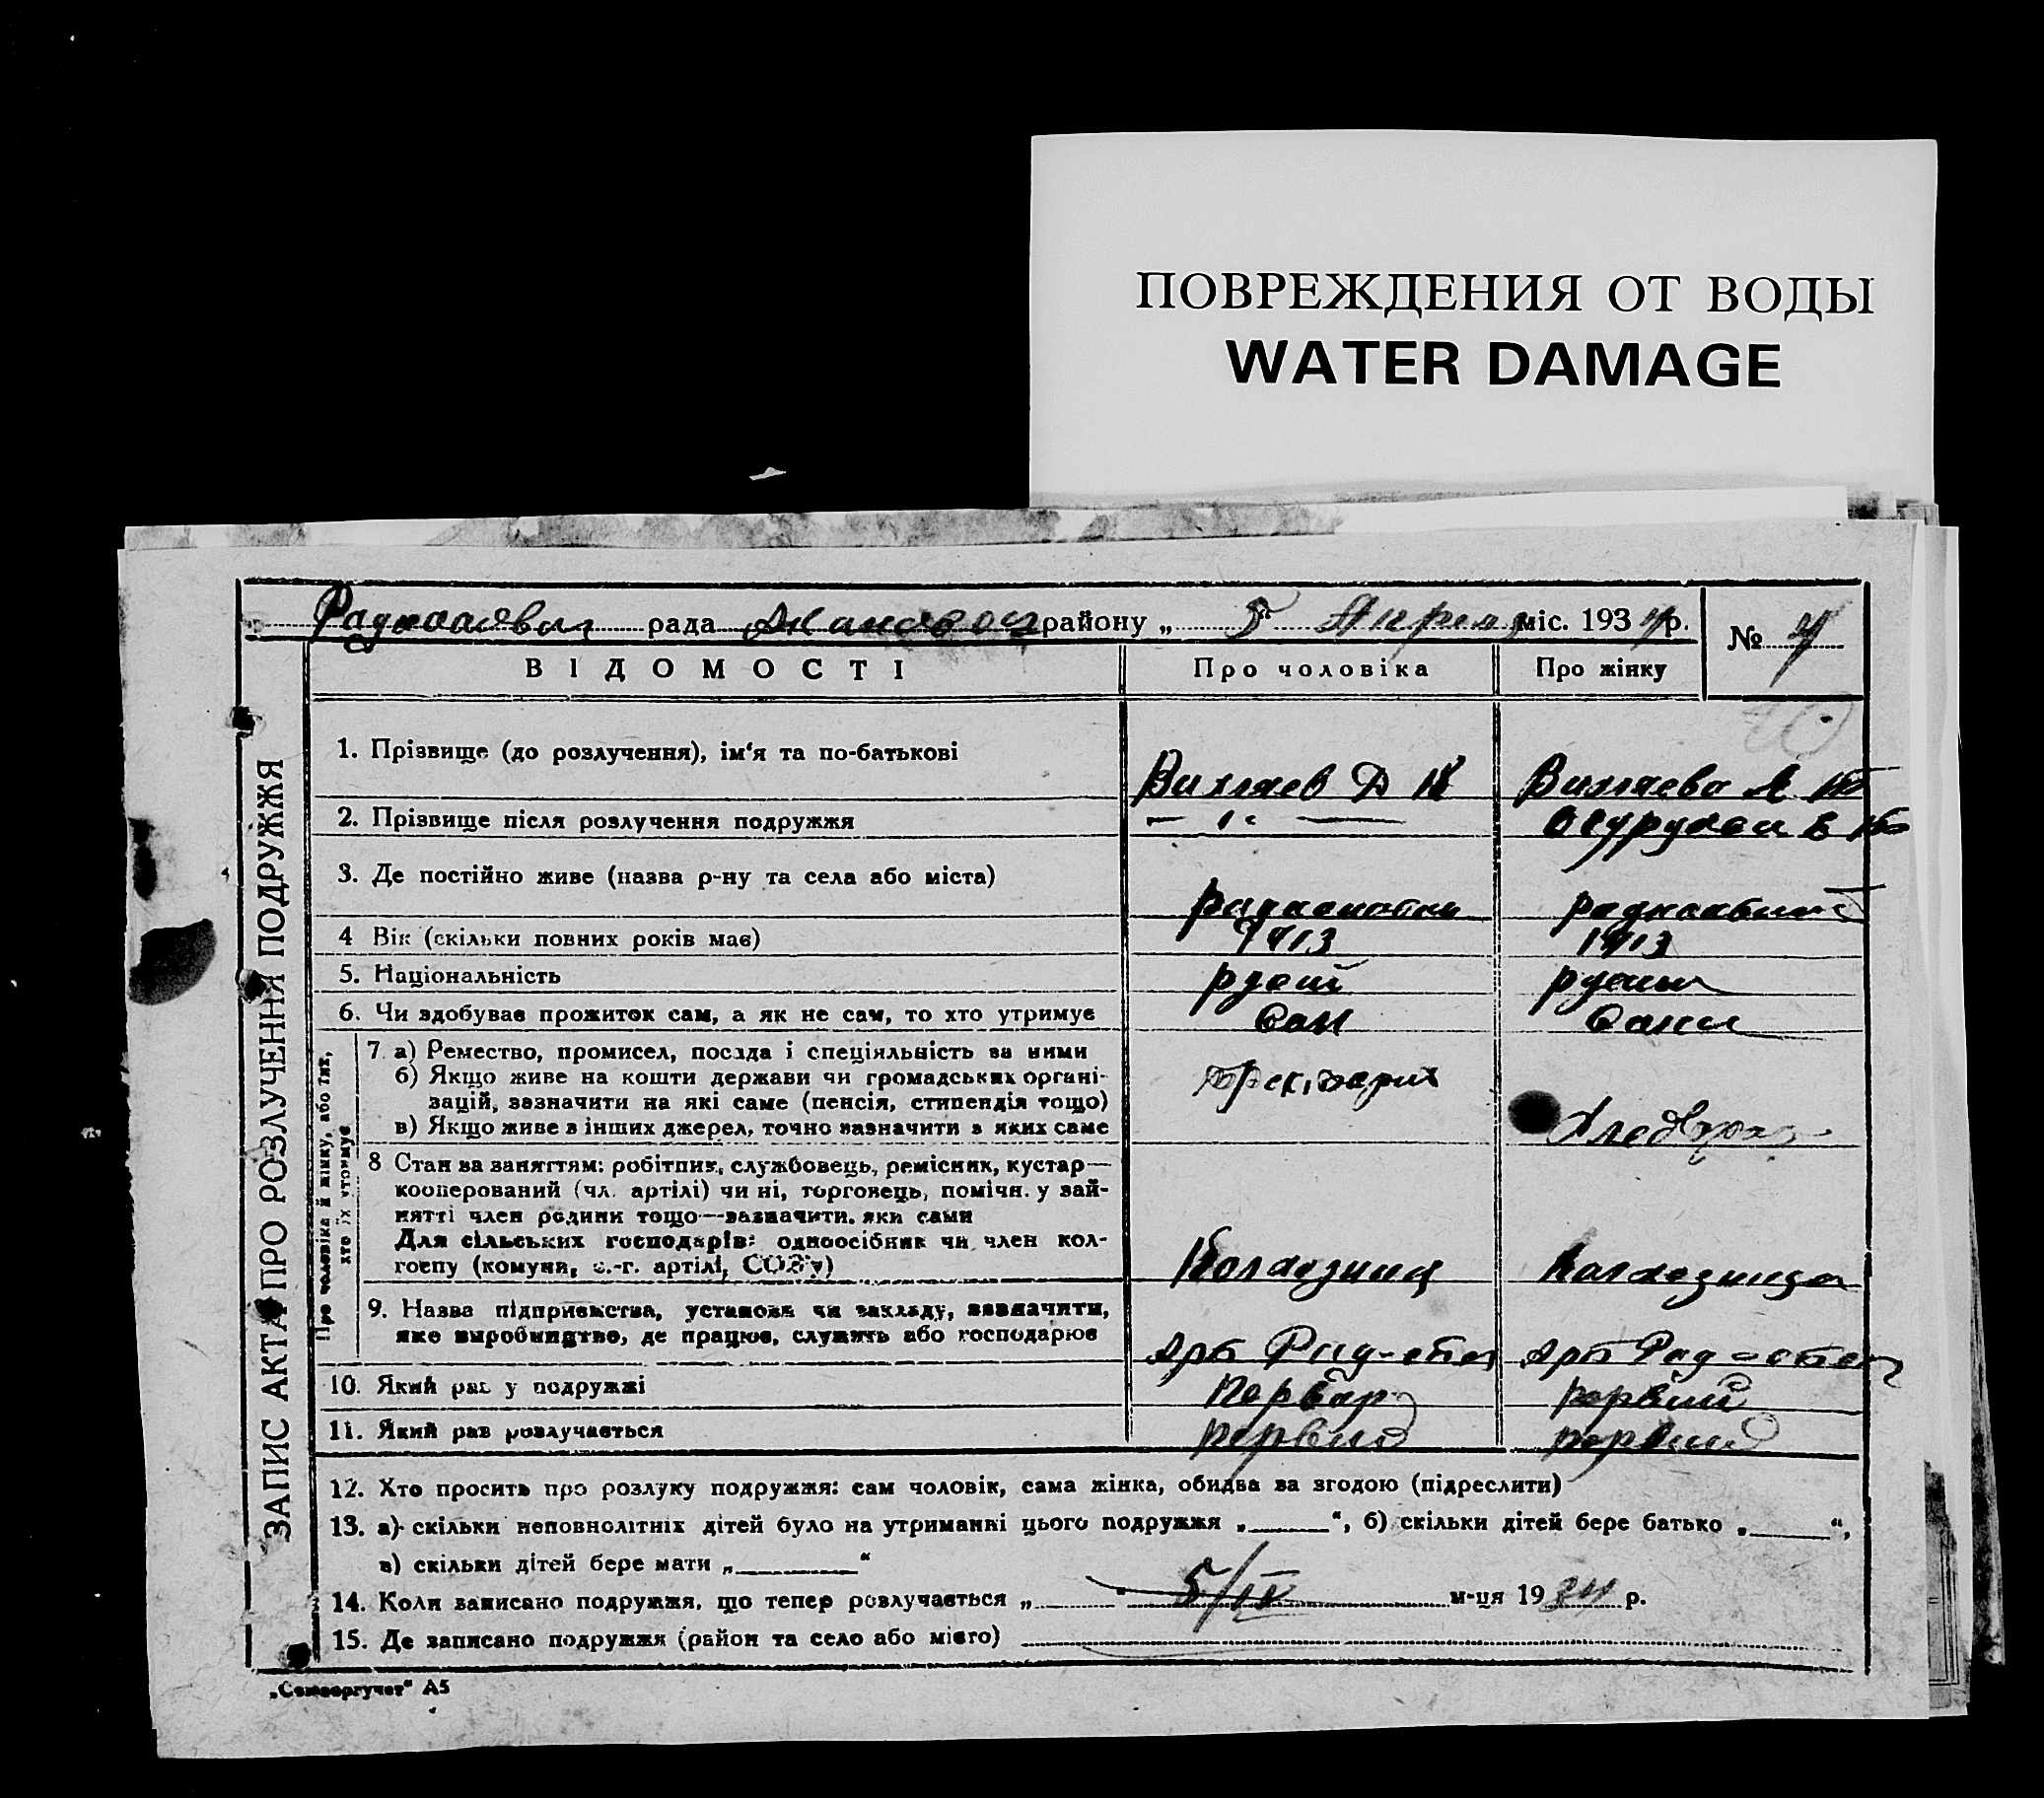 ПОВРЕЖДЕНИЯ ОТ ВОДЫ
WATER DAMAGE
рада району „ 5 “ Апреля міс. 1934 р.
№ 4
ВІДОМОСТІ
Про чоловіка
Про жінку
ЗАПИС АКТА ПРО РОЗЛУЧЕННЯ ПОДРУЖЖЯ
1. Прізвище (до розлучення), ім‘я та по-батькові
Вихляев Д
Вихляева А
2. Прізвище після розлучення подружжя
— „ —
3. Де постійно живе (назва р-ну та села або міста)
4 Вік (скільки повних років має)
1913
1913
5. Національність
6. Чи здобуває прожиток сам, а як не сам, то хто утримує
Сам
Сама
Про чоловіка й жінку, або тих,
хто їх утримує
7. а) Ремество, промисел, посада і спеціяльність за ними
б) Якщо живе на кошти держави чи громадських органі-
зацій, зазначити на які саме (пенсія, стипендія тощо)
в) Якщо живе з інших джерел, точно зазначити з яких саме
8 Стан за заняттям: робітник, службовець, ремісник, кустар—
кооперований (чл. артілі) чи ні, торговець, помічн. у зай-
нятті член родини тощо—зазначити, яки сами
Для сільських господарів: одноосібник чи член кол-
госпу (комуни, с.-г. артілі, СОЗу)
9. Назва підприємства, установи чи закладу, зазначити,
яке виробництво, де працює, служить або господарює
Арт
Арт
10. Який раз у подружжі
первый
11. Який раз розлучається
первый
первый
12. Хто просить про розлуку подружжя: сам чоловік, сама жінка, обидва за згодою (підреслити)
13. а) скільки неповнолітніх дітей було на утриманні цього подружжя „ “, б) скільки дітей бере батько „ “,
в) скільки дітей бере мати „ “
14. Коли записано подружжя, що тепер розлучається „ “ 5/IV м-ця 1934 р.
15. Де записано подружжя (район та село або місто)
„Союзоргучет“ А5